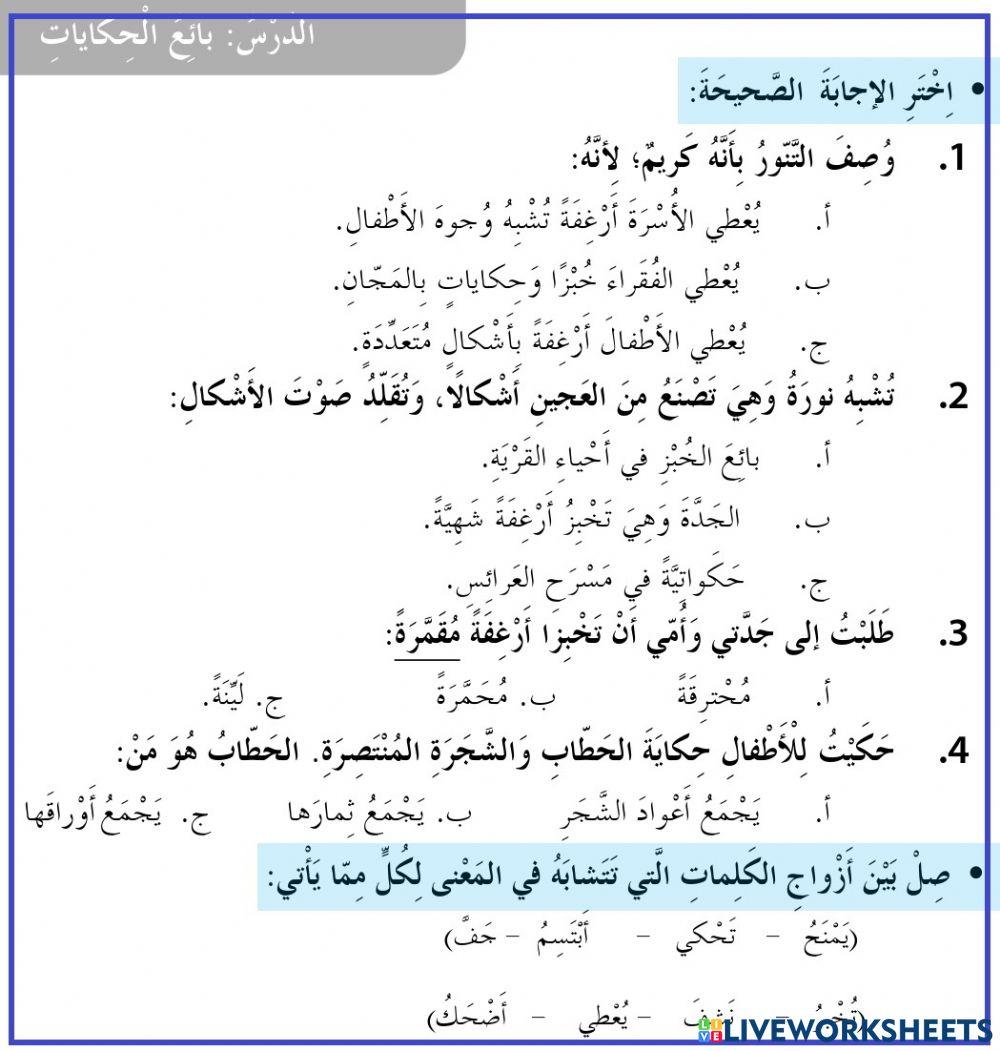 الدَّرْسَ: بائِعَ الْحِكاياتِ
• اِخْتَرِ الإجابَةَ الصَّحيحَةَ:
1. وُصِفَ التَّنّورُ بِأَنَّهُ كَريمٌ؛ لِأنَّهُ:
أ. يُعْطي الأُسْرَةَ أَرْغِفَةً تُشْبِهُ وُجوهَ الأَطْفالِ.
ب. يُعْطي الفُقَراءَ خُبْزًا وَحِكاياتٍ بِالمَجّانِ.
ج. يُعْطي الأَطْفالَ أَرْغِفَةً بِأَشْكالٍ مُتَعَدِّدَةٍ.
2. تُشْبِهُ نورَةُ وَهِيَ تَصْنَعُ مِنَ العَجينِ أَشْكالًا، وَتُقَلِّدُ صَوْتَ الأَشْكالِ:
أ. بائِعَ الخُبْزِ في أَحْياءِ القَرْيَةِ.
ب. الجَدَّةَ وَهِيَ تَخْبِزُ أَرْغِفَةً شَهِيَّةً.
ج. حَكَواتِيَّةً في مَسْرَحِ العَرائِسِ.
3. طَلَبْتُ إلى جَدَّتي وَأُمّي أنْ تَخْبِزا أَرْغِفَةً مُقَمَّرَةً:
أ. مُحْترِقَةً ب. مُحَمَّرَةً ج. لَيِّنَةً.
4. حَكَيْتُ لِلْأَطْفالِ حِكايَةَ الحَطّابِ وَالشَّجَرَةِ المُنْتَصِرَةِ. الحَطّابُ هُوَ مَنْ:
أ. يَجْمَعُ أَعْوادَ الشَّجَرِ ب. يَجْمَعُ ثِمارَها ج. يَجْمَعُ أَوْراقَها
• صِلْ بَيْنَ أَزْواجِ الكَلِماتِ الَّتي تَتَشابَهُ في المَعْنى لِكُلٍّ مِمّا يَأْتي:
(يَمْنَحُ – تَحْكي – أَبْتَسِمُ – جَفَّ)
– نَشِفَ – يُعْطي – أَضْحَكُ)
LIVEWORKSHEETS